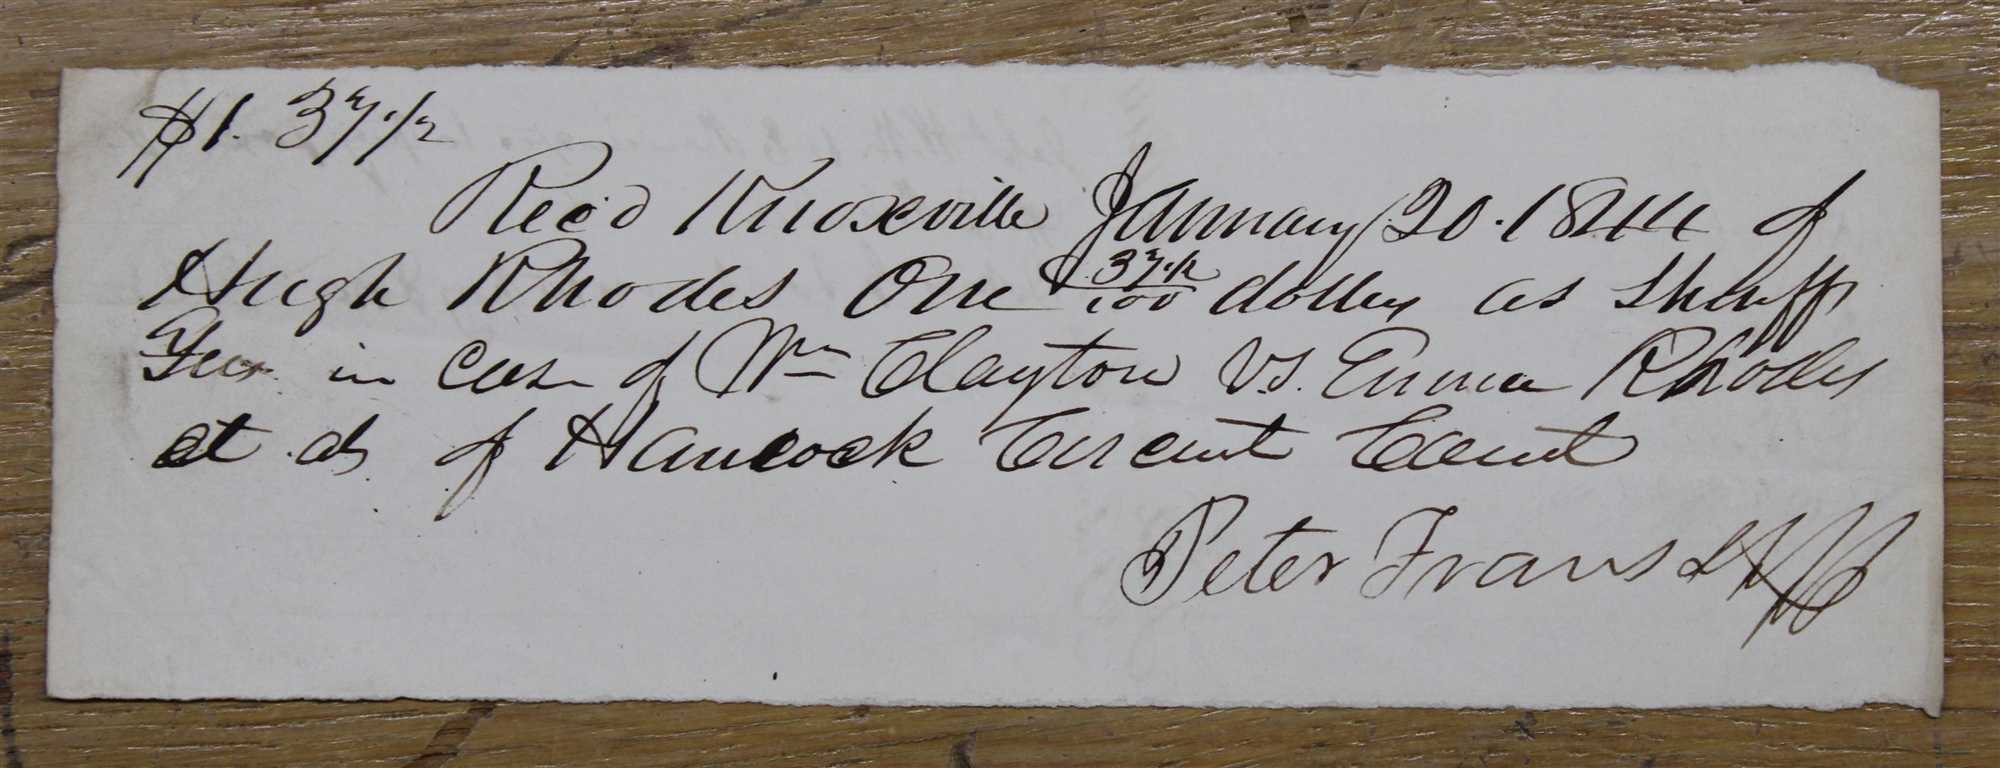 $1. 37.1/2
Recd Knoxville January 20. 1844 of
Hugh Rhodes One 37.1/2/100 dollars as Sheriffs
Fees in Case of Wm Clayton vs. Emma Rhodes
et als of Hancock Circuit Court
Peter Frans Shff